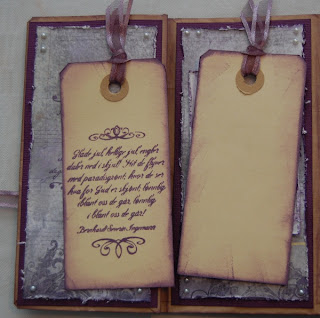 Glade jul, hellige jul, engler
daler ned i skjul! Hit de flyver
med paradisgrønt, hvor de ser
hva for Gud er skjønt, lønnlig
iblant oss de går, lønnlig
iblant oss de går!
Bernhard Severin Ingemann